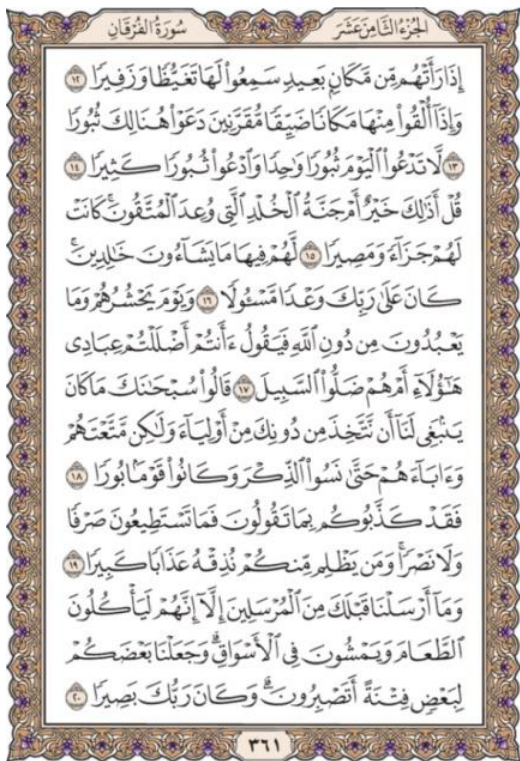 الجُزْءُ الثَّامِنَ عَشَرَ سُورَةُ الفُرْقَانِ
إِذَا رَأَتْهُم مِّن مَّكَانٍۭ بَعِيدٖ سَمِعُواْ لَهَا تَغَيُّظٗا وَزَفِيرٗا ١٢
وَإِذَآ أُلۡقُواْ مِنۡهَا مَكَانٗا ضَيِّقٗا مُّقَرَّنِينَ دَعَوۡاْ هُنَالِكَ ثُبُورٗا
١٣ لَّا تَدۡعُواْ ٱلۡيَوۡمَ ثُبُورٗا وَٰحِدٗا وَٱدۡعُواْ ثُبُورٗا كَثِيرٗا ١٤
قُلۡ أَذَٰلِكَ خَيۡرٌ أَمۡ جَنَّةُ ٱلۡخُلۡدِ ٱلَّتِي وُعِدَ ٱلۡمُتَّقُونَۚ كَانَتۡ
لَهُمۡ جَزَآءٗ وَمَصِيرٗا ١٥ لَّهُمۡ فِيهَا مَا يَشَآءُونَ خَٰلِدِينَۚ
كَانَ عَلَىٰ رَبِّكَ وَعۡدٗا مَّسۡـُٔولٗا ١٦ وَيَوۡمَ يَحۡشُرُهُمۡ وَمَا
يَعۡبُدُونَ مِن دُونِ ٱللَّهِ فَيَقُولُ ءَأَنتُمۡ أَضۡلَلۡتُمۡ عِبَادِي
هَٰٓؤُلَآءِ أَمۡ هُمۡ ضَلُّواْ ٱلسَّبِيلَ ١٧ قَالُواْ سُبۡحَٰنَكَ مَا كَانَ
يَنۢبَغِي لَنَآ أَن نَّتَّخِذَ مِن دُونِكَ مِنۡ أَوۡلِيَآءَ وَلَٰكِن مَّتَّعۡتَهُمۡ
وَءَابَآءَهُمۡ حَتَّىٰ نَسُواْ ٱلذِّكۡرَ وَكَانُواْ قَوۡمَۢا بُورٗا ١٨
فَقَدۡ كَذَّبُوكُم بِمَا تَقُولُونَ فَمَا تَسۡتَطِيعُونَ صَرۡفٗا
وَلَا نَصۡرٗاۚ وَمَن يَظۡلِم مِّنكُمۡ نُذِقۡهُ عَذَابٗا كَبِيرٗا ١٩
وَمَآ أَرۡسَلۡنَا قَبۡلَكَ مِنَ ٱلۡمُرۡسَلِينَ إِلَّآ إِنَّهُمۡ لَيَأۡكُلُونَ
ٱلطَّعَامَ وَيَمۡشُونَ فِي ٱلۡأَسۡوَاقِۗ وَجَعَلۡنَا بَعۡضَكُمۡ
لِبَعۡضٖ فِتۡنَةً أَتَصۡبِرُونَۗ وَكَانَ رَبُّكَ بَصِيرٗا ٢٠
٣٦١